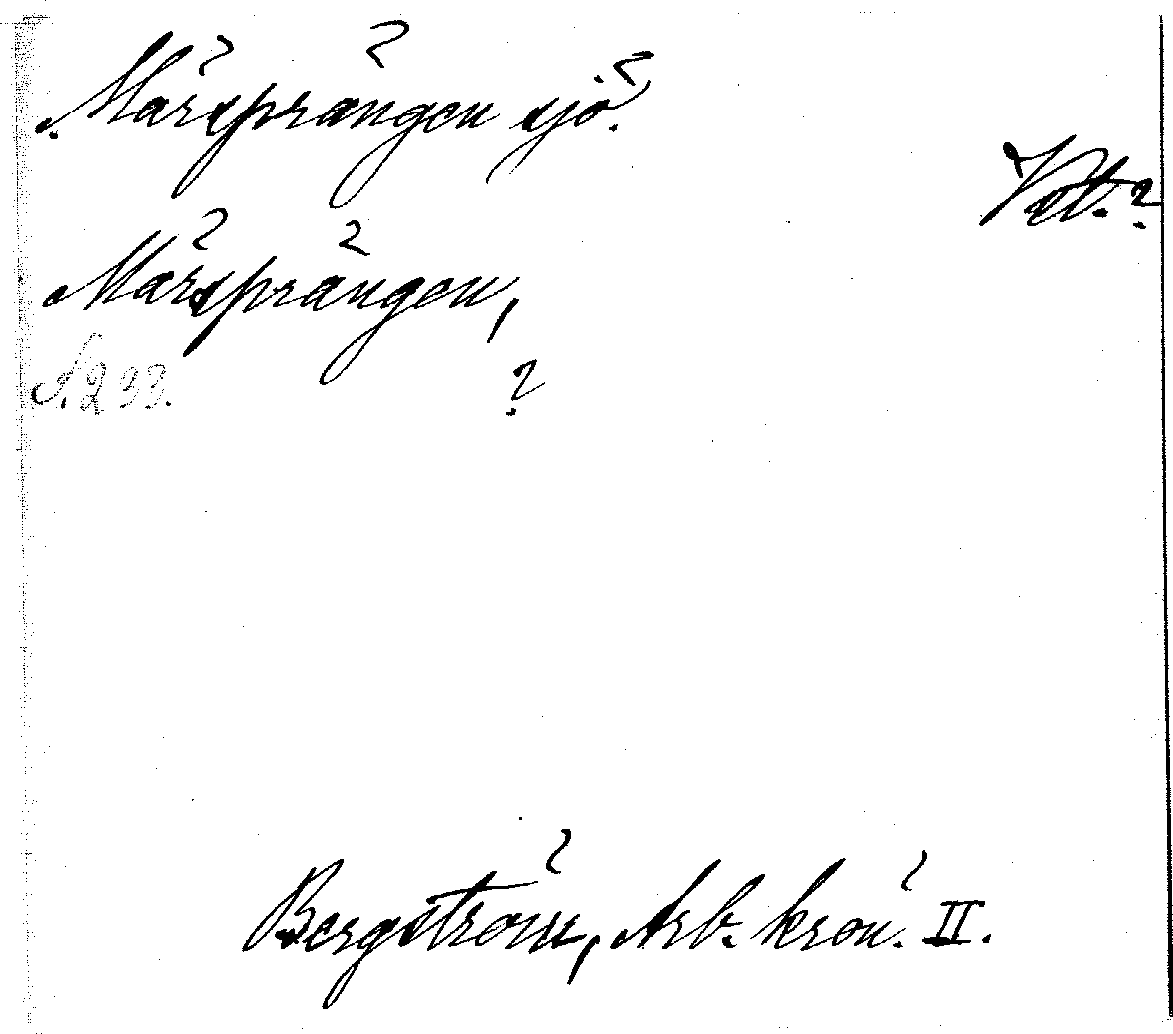 Märsprängen sjö.
Vst.?
Märsprängen,
S. 233. ?
Bergström, Arb. krön. II.